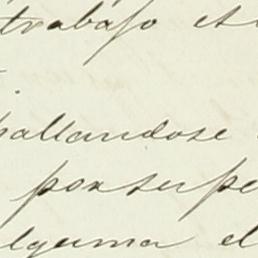 trabajo
hallandose
por supe
alguma el